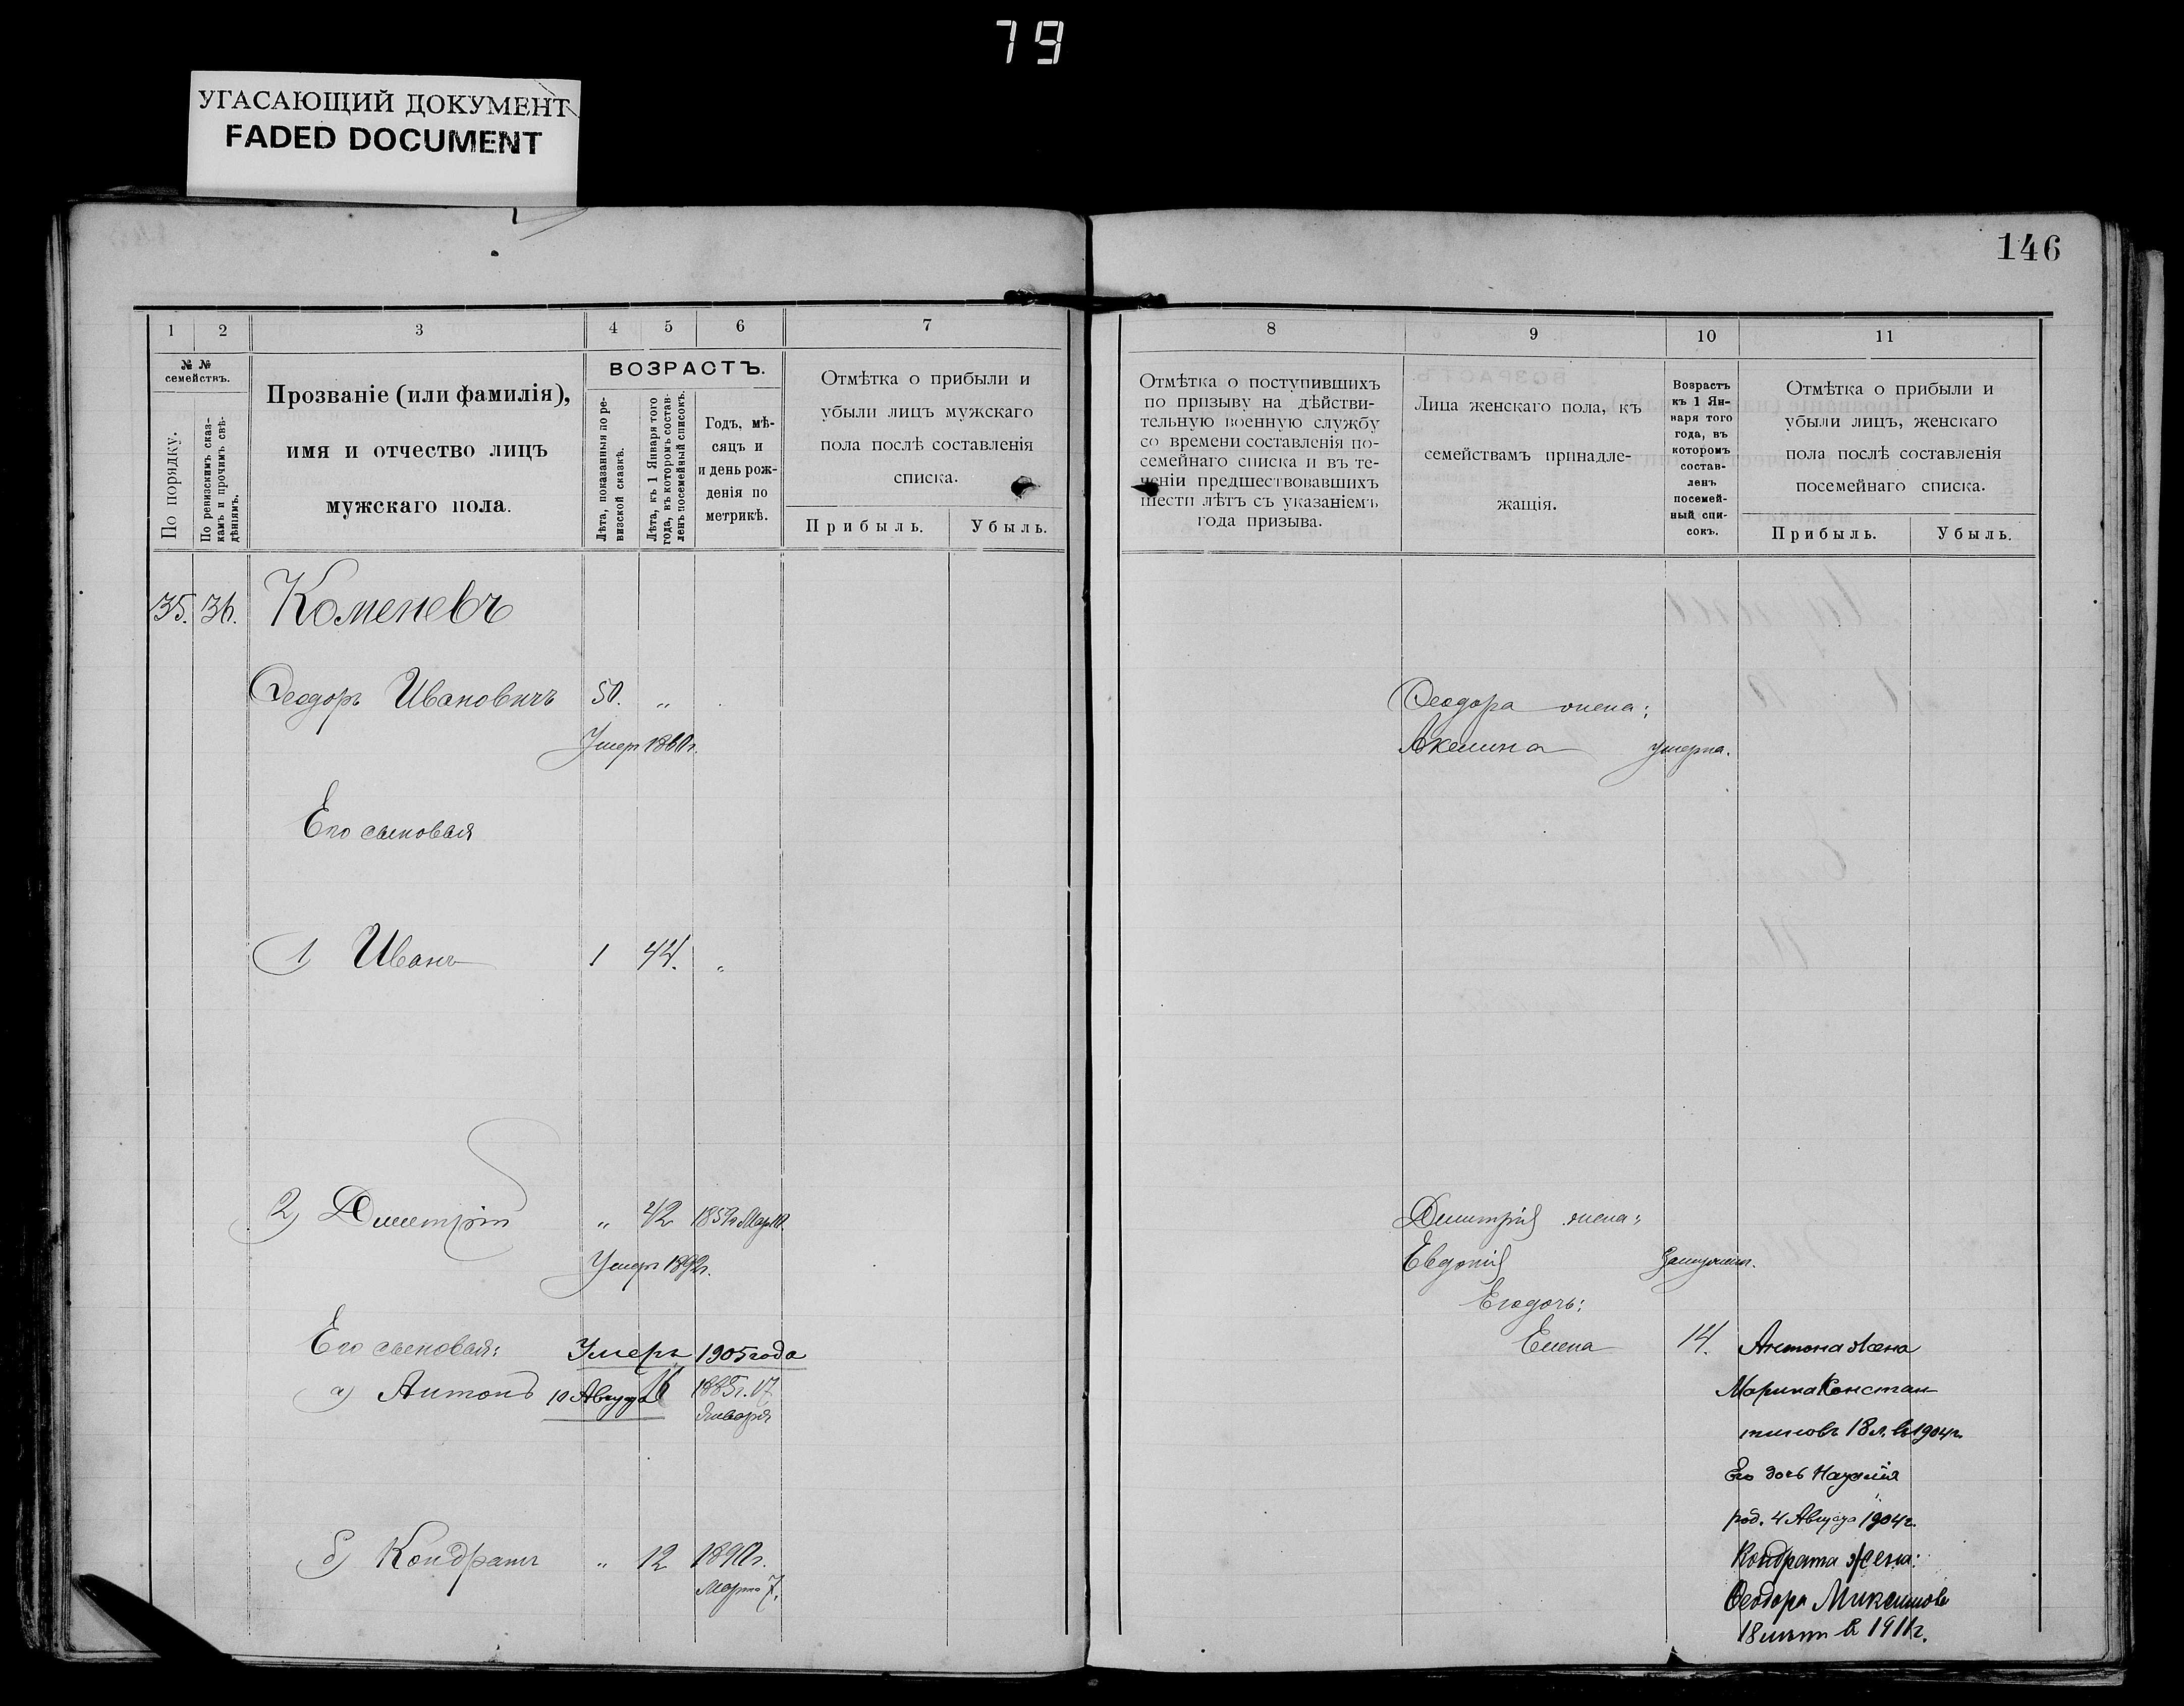 79
УГАСАЮЩИЙ ДОКУМЕНТ
FADED DOCUMENT
146
1 2 3 4 5 6 7
№ №
семействъ.
По порядку.
По ревизскимъ сказ-
камъ и прочимъ свѣ-
дѣніямъ.
Прозваніе (или фамилія),
имя и отчество лицъ
мужскаго пола.
ВОЗРАСТЪ.
Лѣта, показанныя по ре-
визской сказкѣ.
Лѣта, къ 1 Января того
года, въ которомъ состав-
ленъ посемейный списокъ.
Годъ, мѣ-
сяцъ и
и день рож-
денія по
метрикѣ.
Отмѣтка о прибыли и
убыли лицъ мужскаго
пола послѣ составленія
списка.
Прибыль. Убыль.
35. 36. Коменевъ
Ѳеодоръ Ивановичъ 50. "
Умеръ 1860 г.
Его сыновья
1) Иванъ 1 44. "
2) Дмитрій " 42 1859 г. Мар. 10.
Умеръ 1892 г.
Его сыновья: Умеръ 1905 года
а) Антонъ 10 Августа 16 1885 г. 17
Января
б) Кондратъ " 12 1890 г.
Марта 7.
8 9 10 11
Отмѣтка о поступившихъ
по призыву на дѣйстви-
тельную военную службу
со времени составленія по-
семейнаго списка и въ те-
ченіи предшествовавшихъ
шести лѣтъ съ указаніемъ
года призыва.
Лица женскаго пола, къ
семействамъ принадле-
жащія.
Возрастъ
къ 1 Ян-
варя того
года, въ
которомъ
состав-
ленъ
посемей-
ный спи-
сокъ.
Отмѣтка о прибыли и
убыли лицъ, женскаго
пола послѣ составленія
посемейнаго списка.
Прибыль. Убыль.
Ѳеодора жена:
Акелина умерла.
Дмитрія жена:
Евдокія Замужем.
Его дочь:
Елена 14. Антона жена
Марина Констан
тинова 18 л. въ 1904 г.
Его дочь Наталія
род. 4 Августа 1904 г.
Кондрата жена:
Ѳеодора Максимова
18 лѣтъ въ 1911 г.